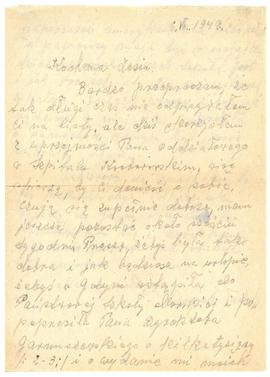 6.VII.1943.
Kochana Zosiu
Bardzo przepraszam, że
tak długi czas nie odpisywałem
Ci na listy, ale dziś skorzystałem
z uprzejmości Pana oddziałowego
w Szpitalu
by Ci donieść o sobie,
czuję się zupełnie dobrze, mam
jeszcze pozostać około sześciu
tygodni. Proszę, żebyś była tak
dobra i jak będziesz na urlopie
żebyś w Gdyni wstąpiła do
Państwowej Szkoły Morskiej i
poprosiła Pana Dyrektora
Garnuszewskiego o kilka
/: 2-3 :/ i o wydanie mi moich